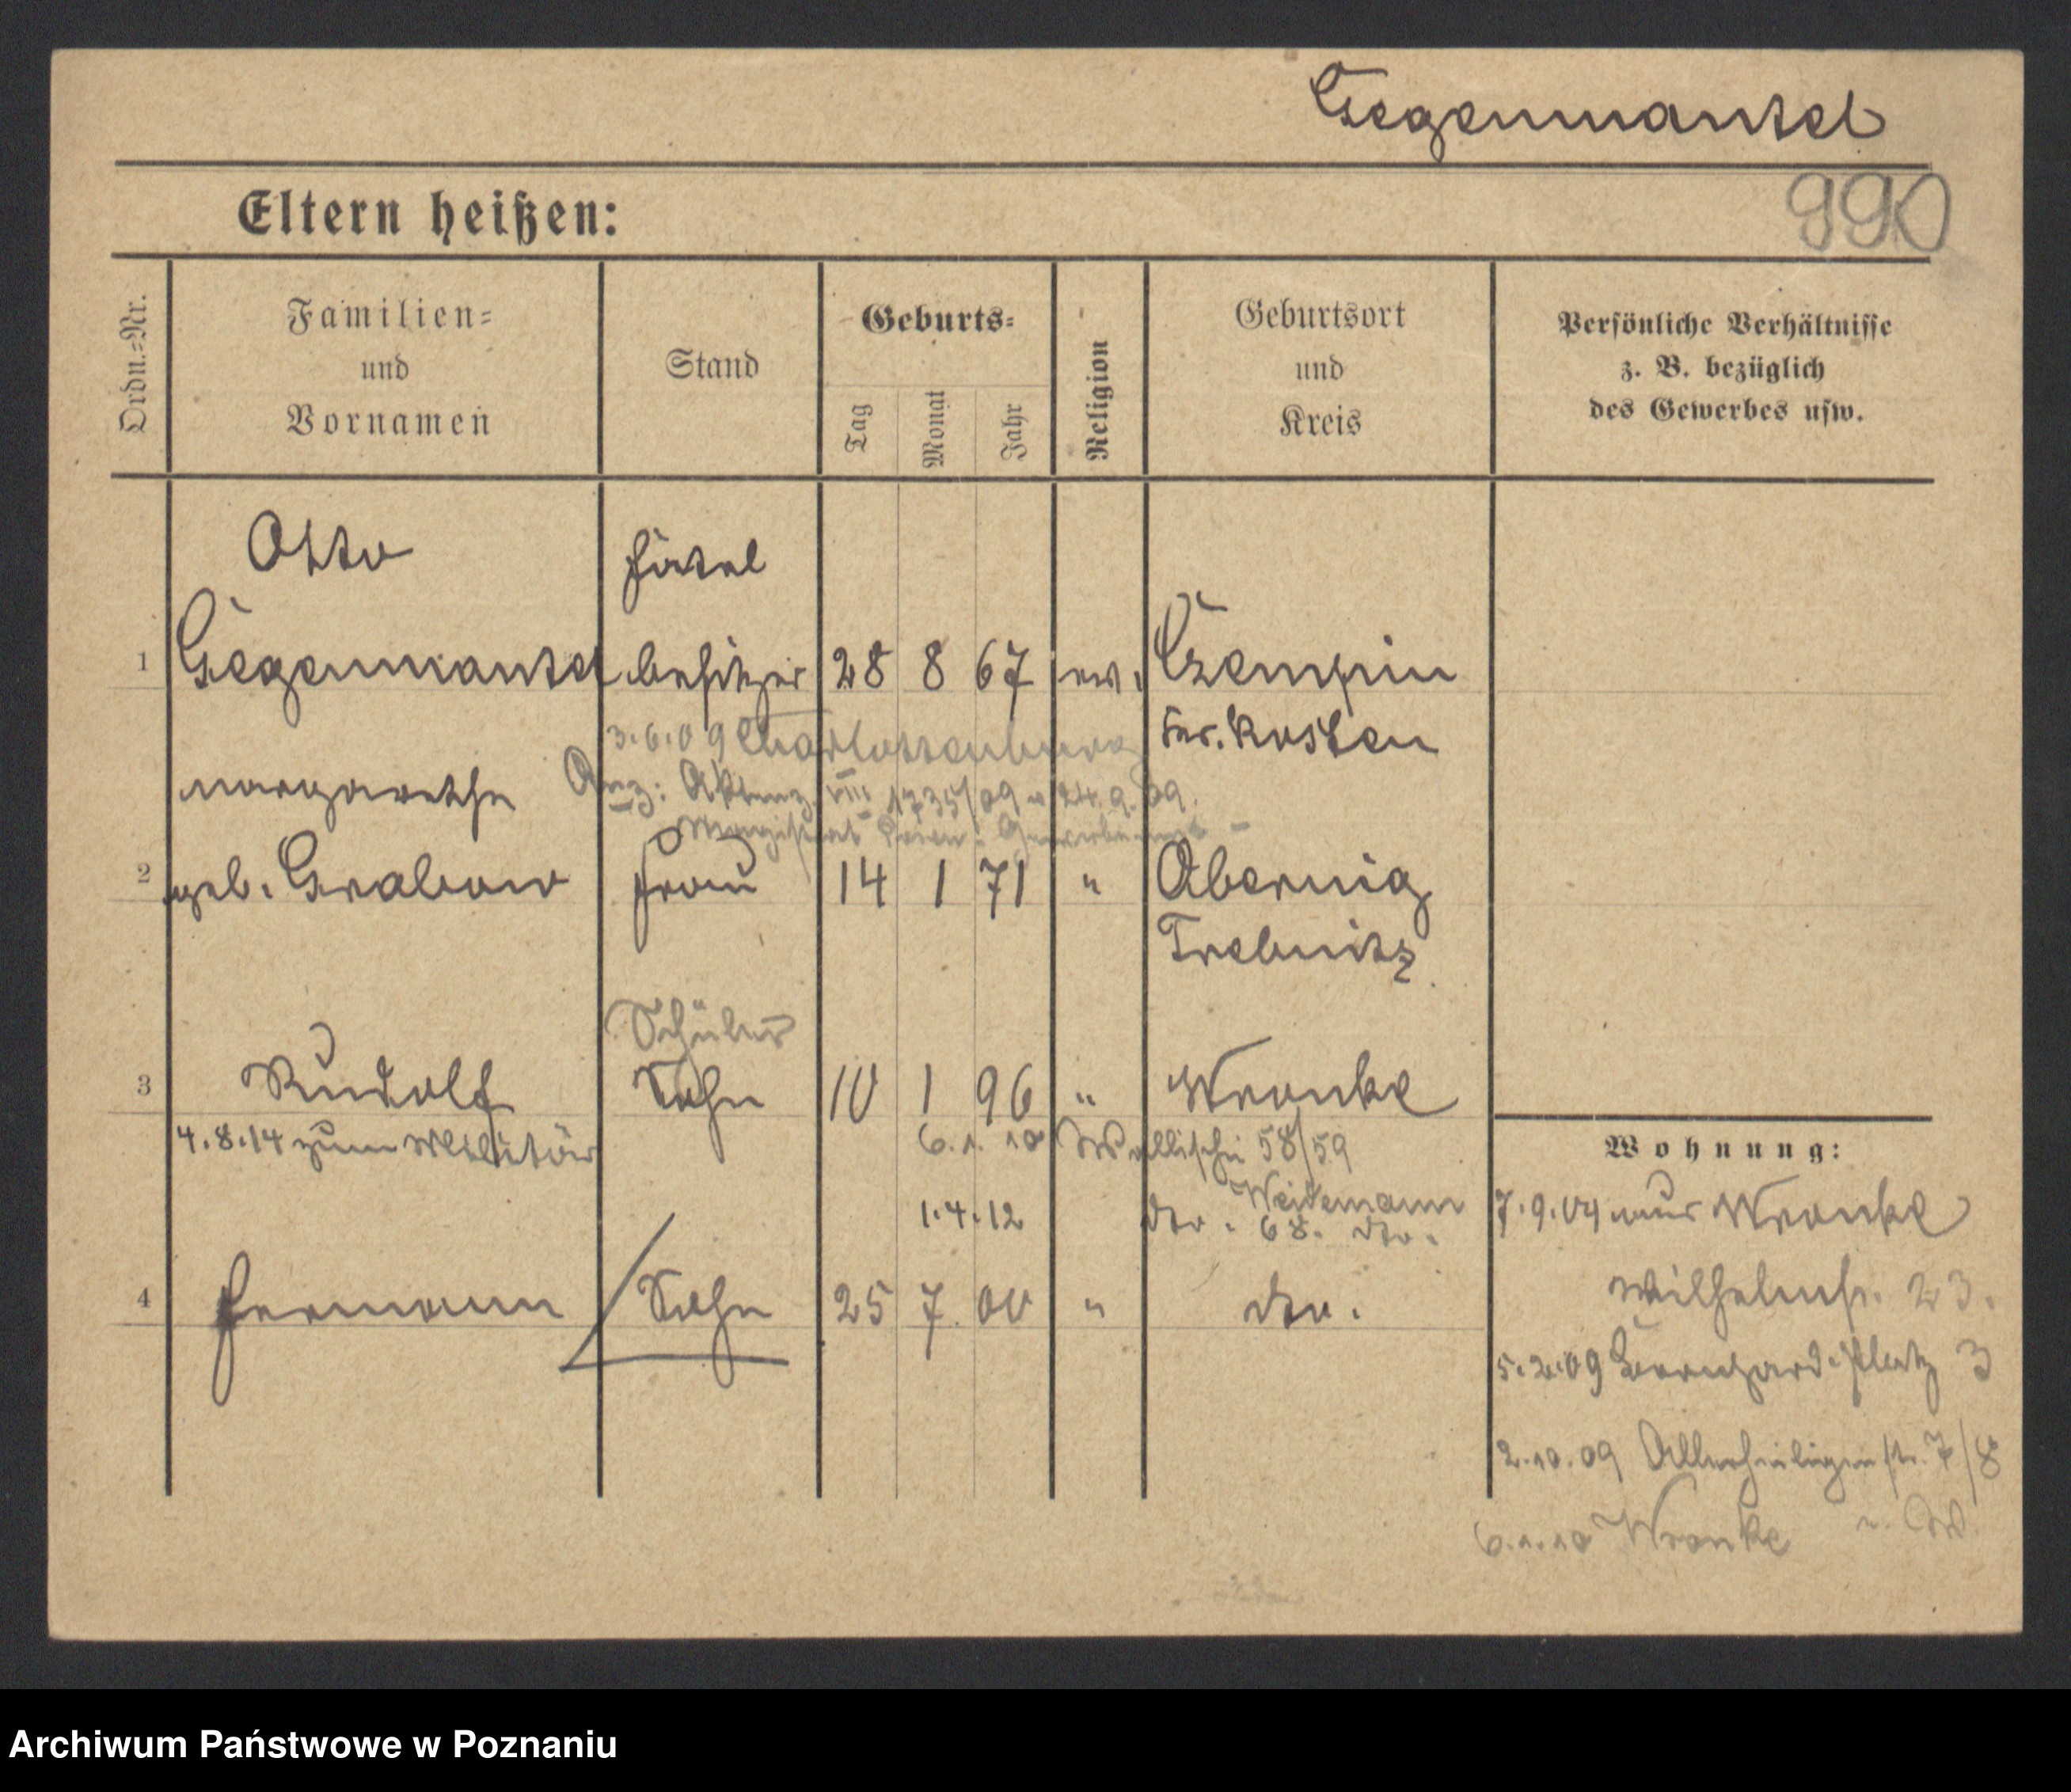 Gegenmantel
990
Eltern heißen:
Ordn.=Nr.
Familien= und Vornamen
Stand
Geburts=
Tag
Monat
Jahr
Religion
Geburtsort und Kreis
Persönliche Verhältnisse
z. B. bezüglich
des Gewerbes usw.
Otto Hotel
1 Gegenmantel besitzer 28 8 67 ev. Czempin
3.6.09 Charlottenburg Kr. Kosten
Margarethe
Anz: Aktenz. VIII 1735/09 v 24.9.09.
Magistrat
2 geb. Grabow Frau 14 1 71 " Obernigk
Trebnitz
Schüler
3 Rudolf Sohn 10 1 96 " Wronke
4.8.14 zum Militär
6.1.10 Wallischei 58/59
Weidemann
1.4.12 dto. 68. dto.
4 Hermann Sohn 25 7 00 " dto.
Wohnung:
7.9.04 aus Wronke
Wilhelmstr. 23.
5.2.09 Bernhard-Platz 3
2.10.09 Allerheiligenstr. 7/8
6.1.10 Wronke
Archiwum Państwowe w Poznaniu